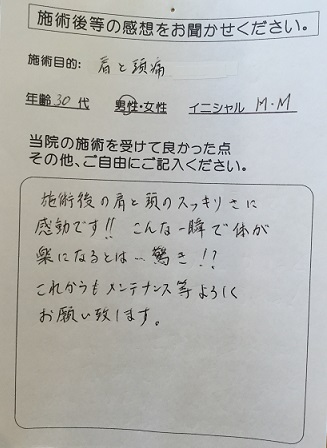 施術後等の感想をお聞かせください。
施術目的: 肩と頭痛
年齢 30 代 男性・女性 イニシャル M・M
当院の施術を受けて良かった点
その他、ご自由にご記入ください。
施術後の肩と頭のスッキリさに
感動です!! こんな一瞬で体が
楽になるとは… 驚き!?
これからもメンテナンス等よろしく
お願い致します。